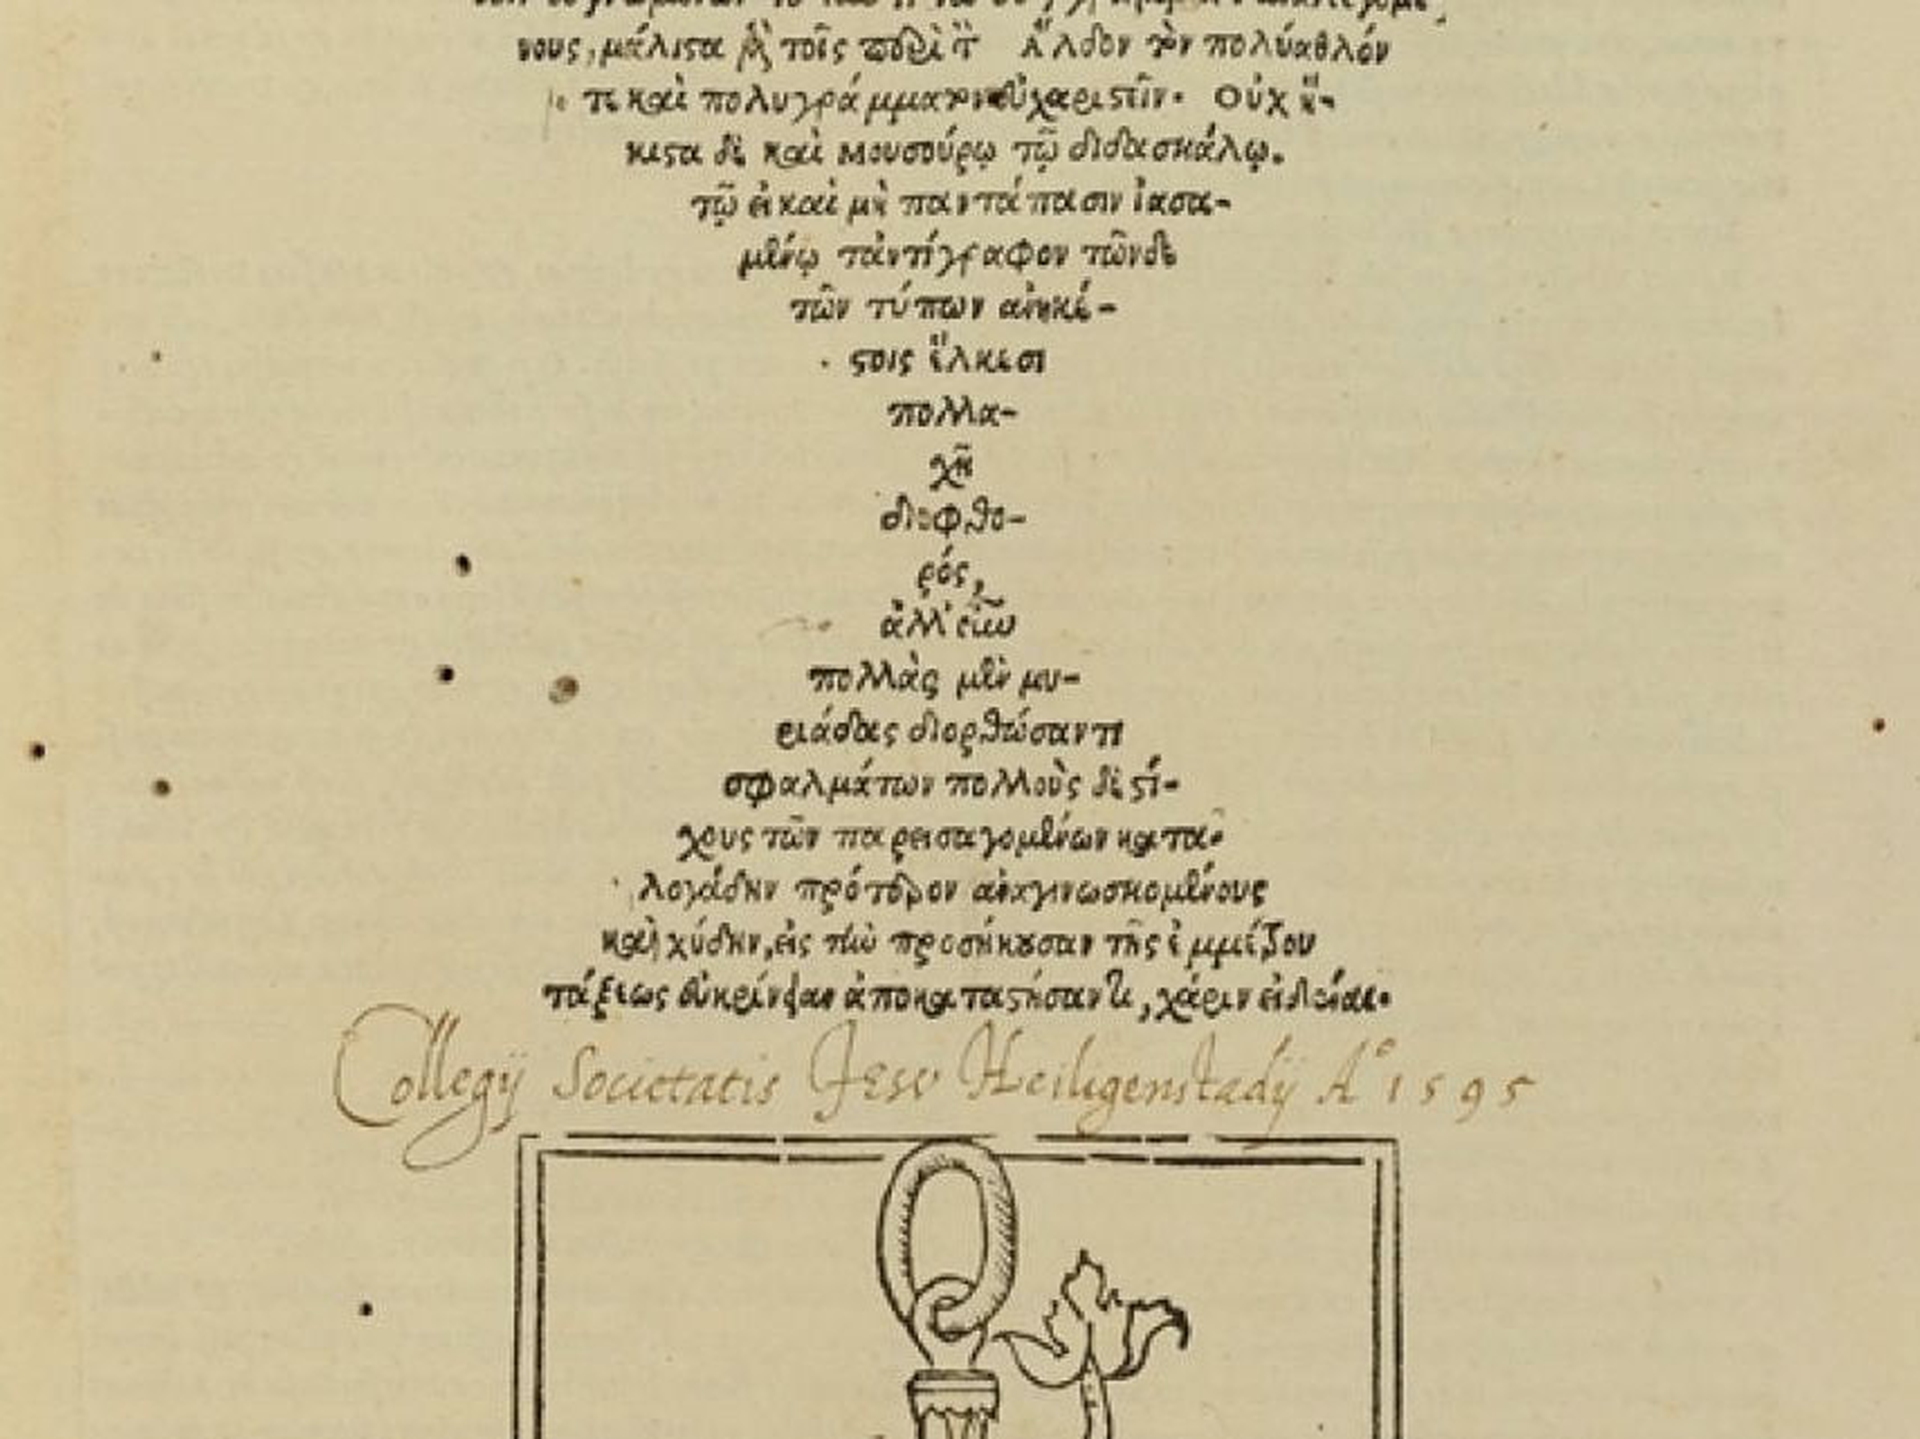 νους, μάλιστα δὴ τοῖς περὶ τ Ἄλδον τὸν πολύαθλόν
τε καὶ πολυγράμματον εὐχαριστεῖν. Οὐχ ἥ-
κιστα δὲ καὶ Μουσούρῳ τῷ διδασκάλῳ.
τῷ εἰ καὶ μὴ παντάπασιν ἰασα-
μένῳ τἀντίγραφον τῶνδε
τῶν τύπων ἀνηκέ-
στοις ἕλκεσι
πολλα-
χῆ
διεφθο-
ρός,
ἀλλ' οὖν
πολλὰς μὲν μυ-
ριάδας διορθώσαντι
σφαλμάτων πολλοὺς δὲ στί-
χους τῶν παρεισαγομένων κατα-
λογάδην πρότερον ἀναγινωσκομένους
καὶ χύδην, εἰς τὴν προσήκουσαν τῆς ἐμμέτρου
τάξεως εὐκρίνειαν ἀποκαταστήσαντι, χάριν εἰδέναι.
Collegij Societatis Jesv Heiligenstadij Aº 1595